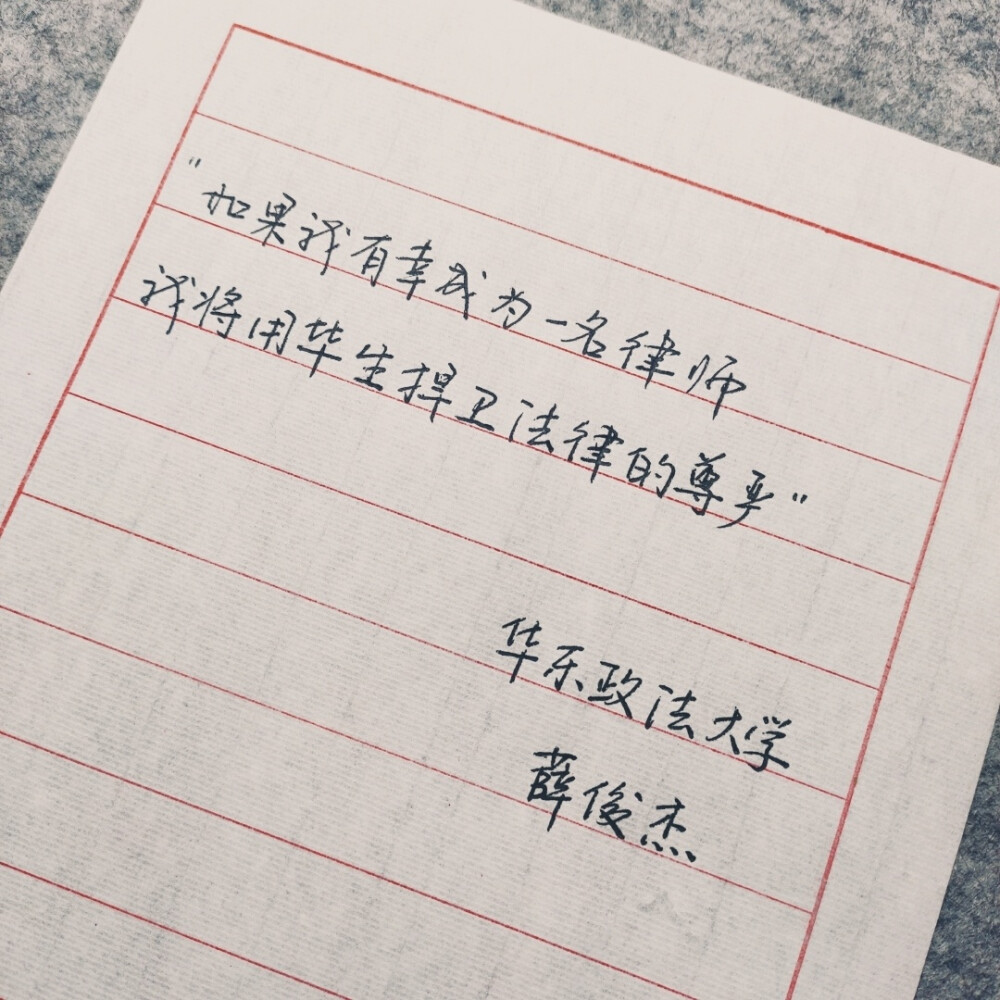 "如果我有幸成为一名律师
我将用毕生捍卫法律的尊严"
华东政法大学
薛俊杰